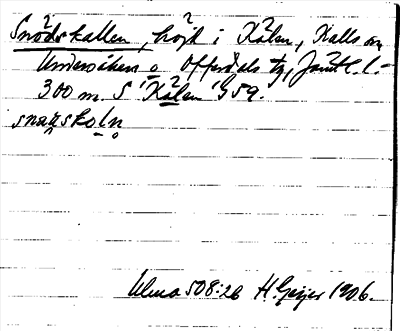 Snödskallen, höjd i Kölen, Kalls sn,
Undersåkers o Offerdals tg, Jämtl. l. -
300 m. S 'Kölen' 959.
snakskoln
Ulma 508:26 H. Geijer 1906.